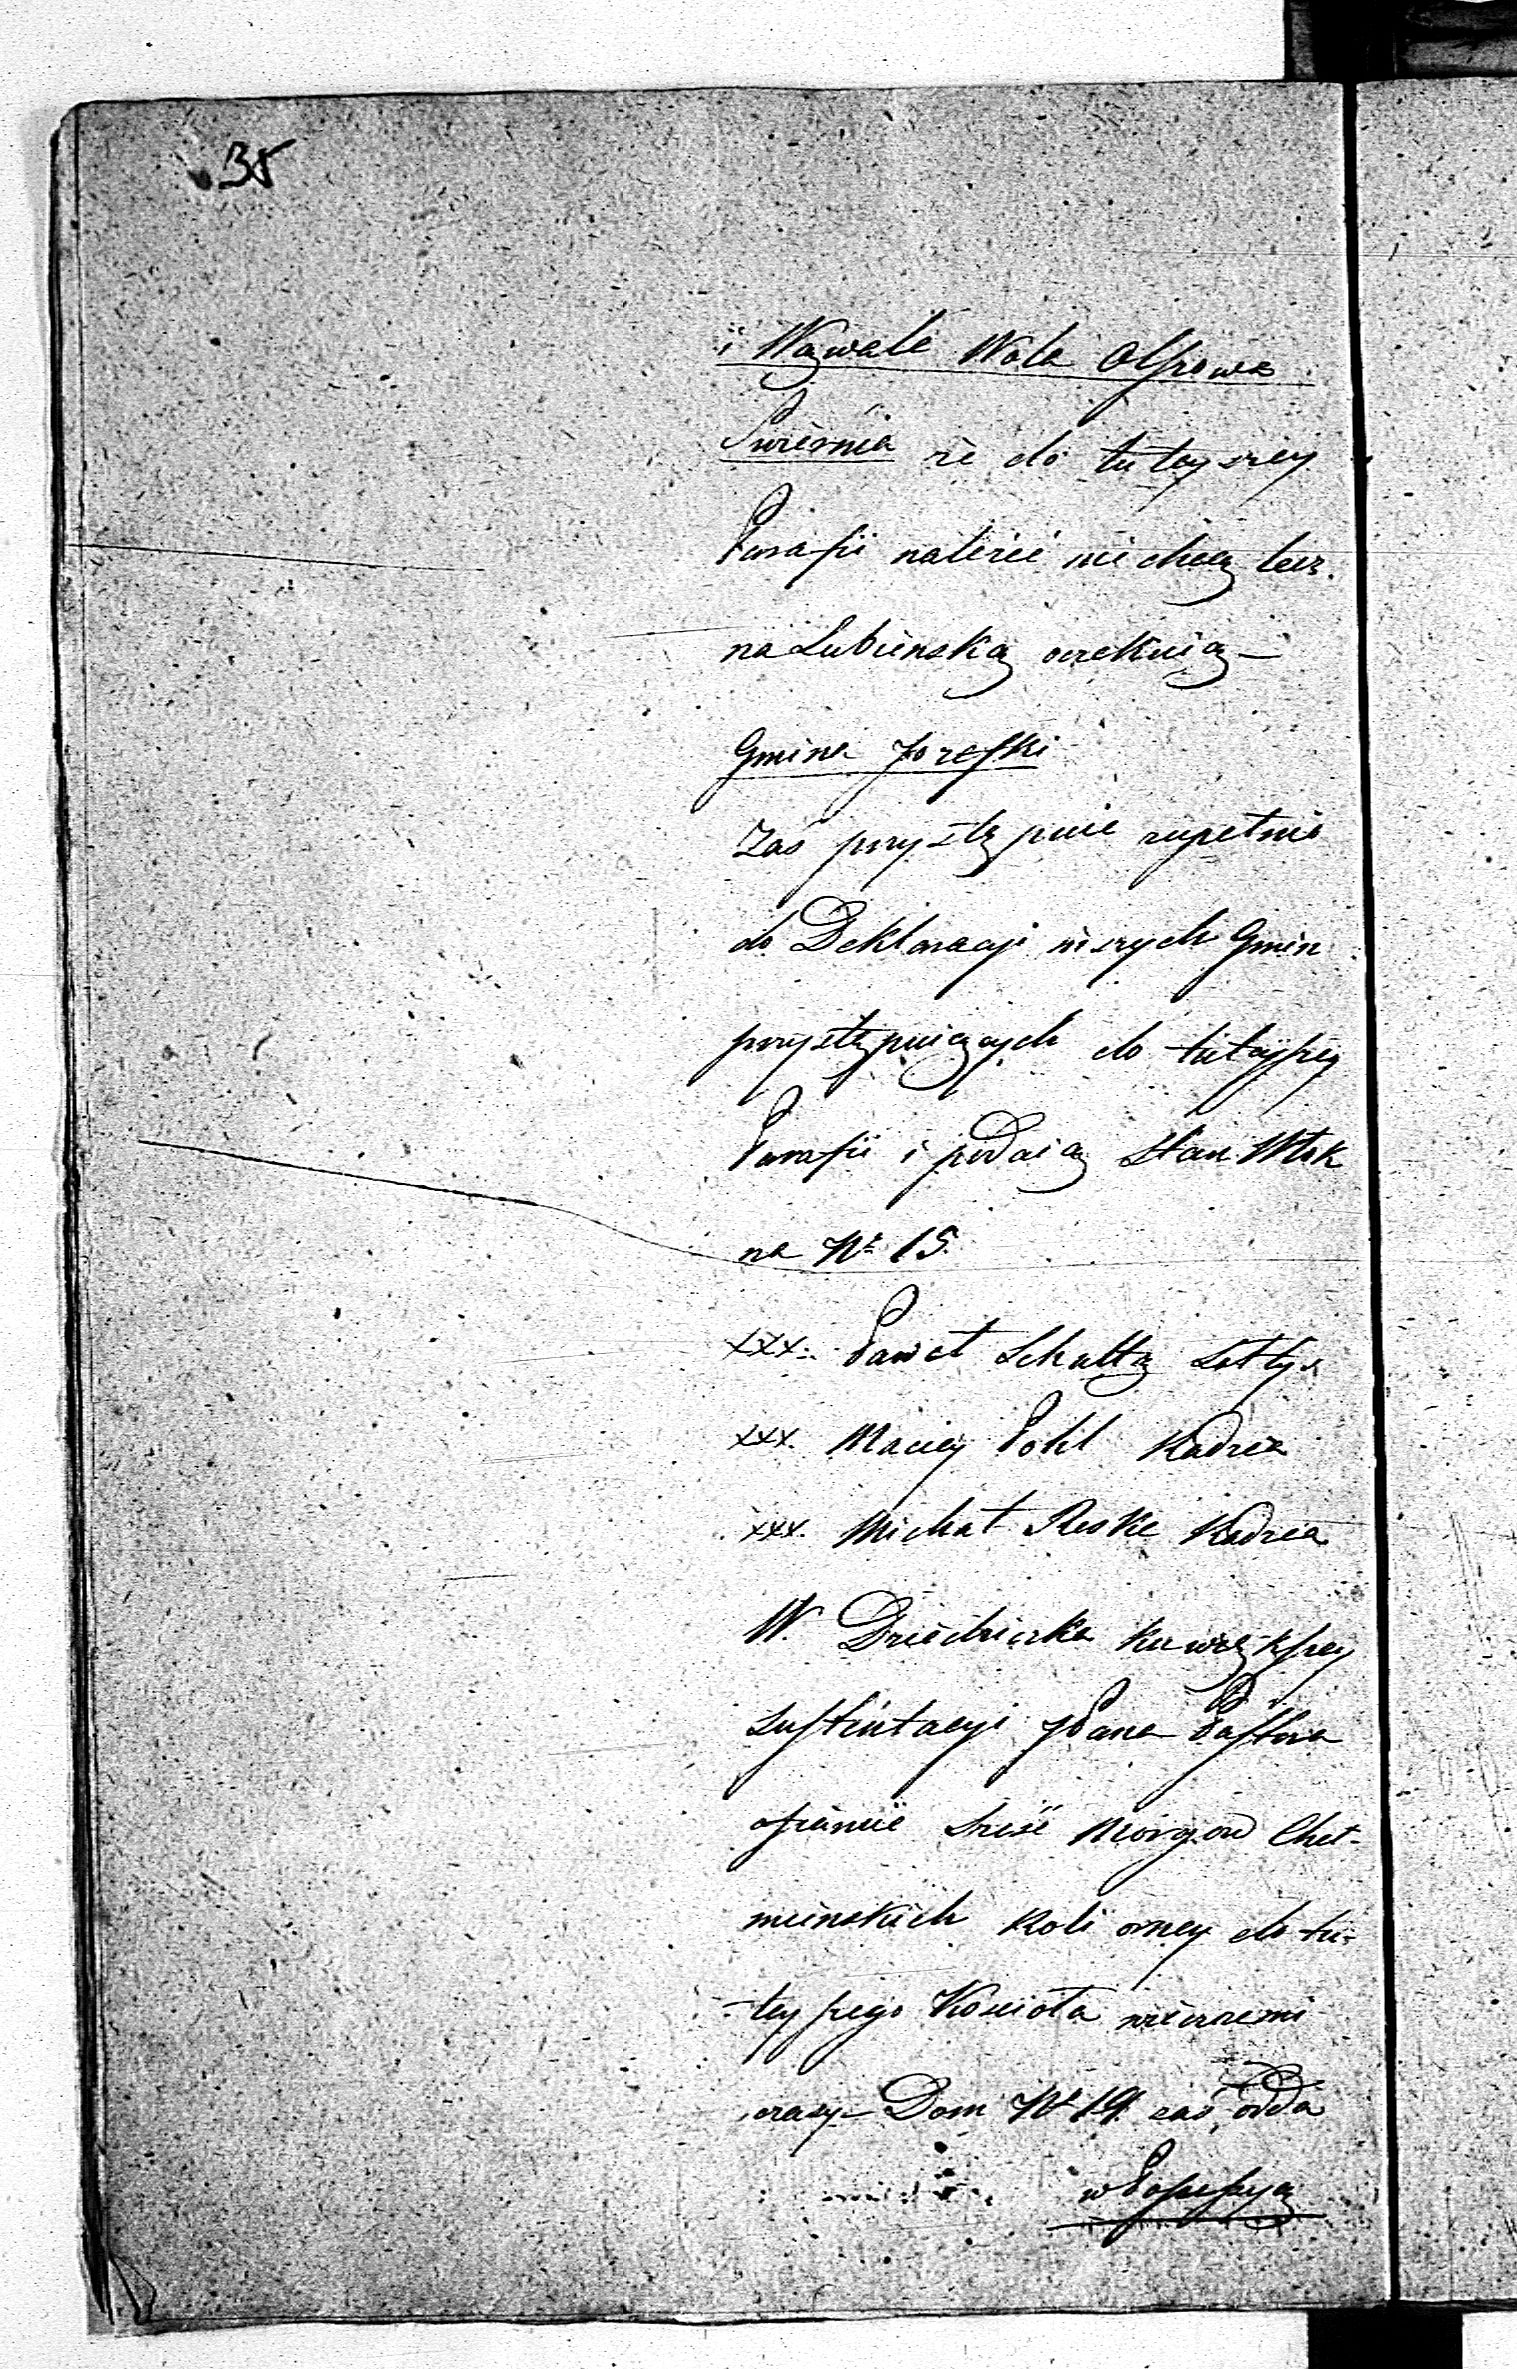 35
i Wągwale Wola Olszowa
Swiernia że do tutayszey
Parafii należeć nie chcą lecz
na Lubienską oczekuią –
Gmina Jozefki
Zaś przystępuie zupełnie
do Deklaracyi niższych Gmin
przystępuiących do tutayszey
Parafii i podaią Stan Włok
na Nº 15.
xxx. Paweł Schultz Sołtys
xxx. Maciey Pohl Radzca
xxx. Michał Reske Radzca
W. Dziedziczka ku większey
Sustentacyi JPana Pastora
ofiaruie Sześć Morgow Cheł-
mińskich Roli orney do tu-
-tayszego Kościoła wiecznemi
czasy – Dom Nº 19. zaś odda
w Possessyą